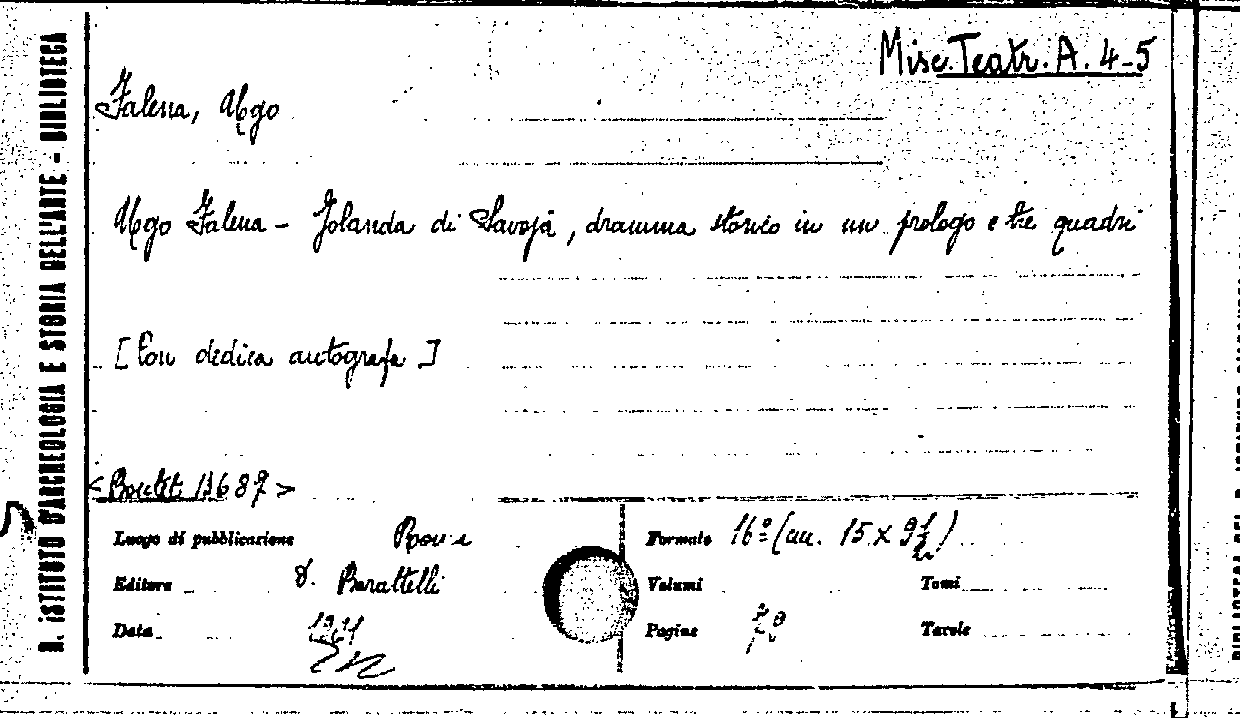 Misc. Teatr. A. 4-5
Falena, Ugo
Ugo Falena - Jolanda di Savoja, dramma storico in un prologo e tre quadri
[Con dedica autografa]
R. ISTITUTO D'ARCHEOLOGIA E STORIA DELL'ARTE - BIBLIOTECA
Luogo di pubblicazione Roma
Formato 16º (cm. 15 x 9½)
Editore Barattelli
Volumi
Tomi
Data
Pagine
Tavole